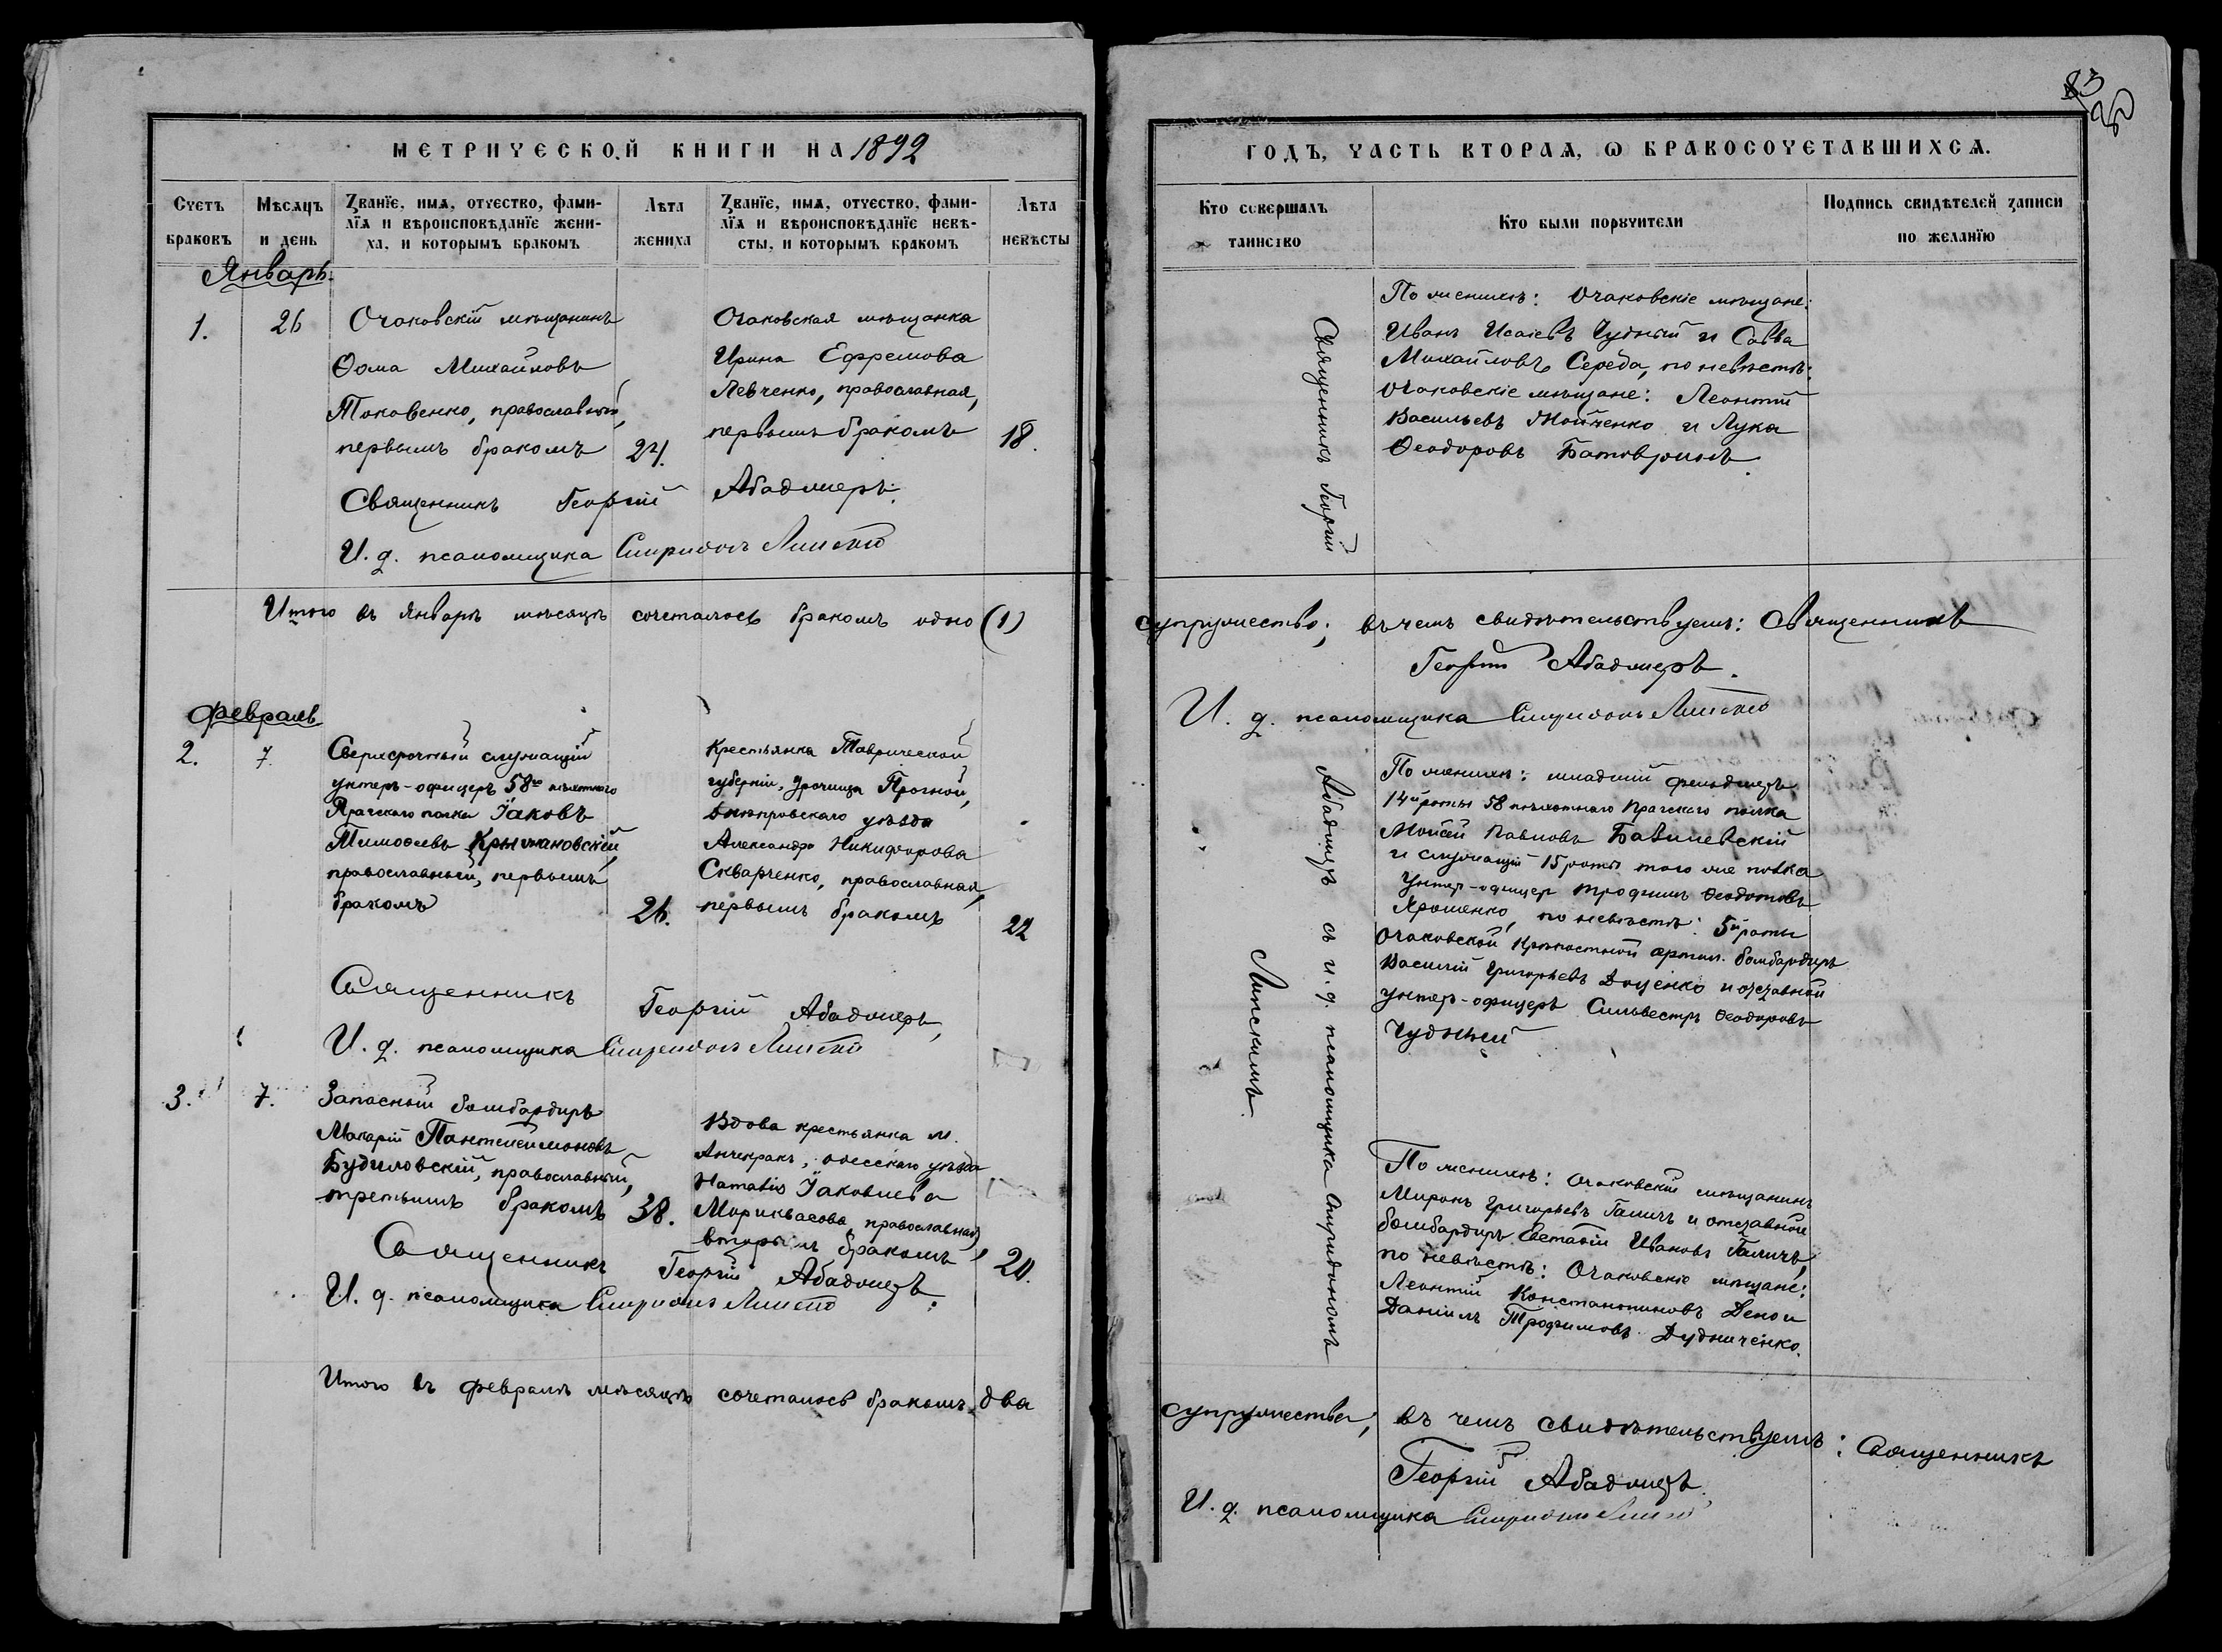 МЕТРИЧЕСКОЙ КНИГИ НА 1892
Счетъ браковъ
Мѣсяцъ и день
Званїе, имя, отчество, фами-
лїя и вѣроисповѣданїе жени-
ха, и которымъ бракомъ
Лѣта жениха
Званїе, имя, отчество, фами-
лїя и вѣроисповѣданїе невѣ-
сты, и которымъ бракомъ
Лѣта невѣсты
Январь.
1.
26
Очаковскій мѣщанинъ
Ѳома Михайловъ
Токовенко, православный,
первымъ бракомъ
24.
Очаковская мѣщанка
Ирина Ефремова
Левченко, православная,
первымъ бракомъ
18.
Священникъ Георгій Абаджеръ.
И. д. псаломщика Спиридонъ Липскій
Итого въ Январѣ мѣсяцѣ сочеталось бракомъ одно (1)
Февраль
2.
7.
Сверхсрочный служащій
унтеръ-офицеръ 58го пѣхотнаго
Прагскаго полка Іаковъ
Тимоѳеевъ Крыжановскій,
православный, первымъ
бракомъ
26.
Крестьянка Таврической
губерніи, урочища Прогной,
Днѣпровскаго уѣзда
Александра Никифорова
Скварченко, православная,
первымъ бракомъ
22
Священникъ Георгій Абаджеръ,
И. д. псаломщика Спиридонъ Липскій
3.
7.
Запасный бомбардиръ
Макарій Пантелеимоновъ
Будиловскій, православный,
третьимъ бракомъ
38.
Вдова крестьянка м.
Анчекракъ, Одесскаго уѣзда
Наталія Іаковлева
православная,
вторымъ бракомъ
24.
Священникъ Георгій Абаджеръ.
И. д. псаломщика Спиридонъ Липскій
Итого въ февралѣ мѣсяцѣ сочеталось бракомъ два
83
ГОДЪ, ЧАСТЬ ВТОРАЯ, Ѡ БРАКОСОЧЕТАВШИХСЯ.
Кто совершалъ
таинство
Кто были порꙋчители
Подпись свидѣтелей записи
по желанїю
Священникъ Георгій
По женихѣ: Очаковскіе мѣщане:
Иванъ Исаіевъ Чудный и Савва
Михайловъ Середа, по невѣстѣ:
Очаковскіе мѣщане: Леонтій
Васильевъ Мойченко и Лука
Ѳеодоровъ
супружество; въ чемъ свидѣтельствуемъ: Священникъ
Георгій Абаджеръ.
И. д. псаломщика Спиридонъ Липскій
Абаджеръ съ и. д. псаломщика Спиридономъ
Липскимъ.
По женихѣ: младшій фельдшеръ
14й роты 58 пѣхотнаго Прагскаго полка
Моисей Павловъ
и служащій 15 роты того же полка
унтеръ-офицер Трофимъ Ѳеодотовъ
Ярошенко, по невѣстѣ: 5й роты
Очаковской Крѣпостной артил. бомбардиръ
Василій Григорьевъ Доценко и отставной
унтеръ-офицеръ Сильвестръ Ѳеодоровъ
Чудный
По женихѣ: Очаковскій мѣщанинъ
Миронъ Григорьевъ Галичъ и отставной
бомбардиръ Евстафій Ивановъ Галичъ,
по невѣстѣ: Очаковскіе мѣщане:
Леонтій Константиновъ и
Даніилъ Трофимовъ Дудниченко.
супружества; въ чемъ свидѣтельствуемъ: Священникъ
Георгій Абаджеръ.
И. д. псаломщика Спиридонъ Липскій